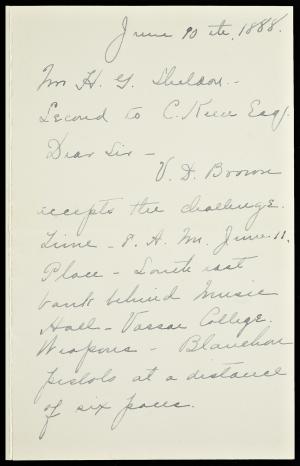 June 10 th, 1888.
Mr H. G. Sheldon.-
Second to C. Keer Esq.
Dear Sir -
V. D. Brown
accepts the challenge.
Time - 8. A. M. June. 11.
Place - South east
bank behind Music
Hall - Vassar College.
Weapons -
pistols at a distance
of six paces.